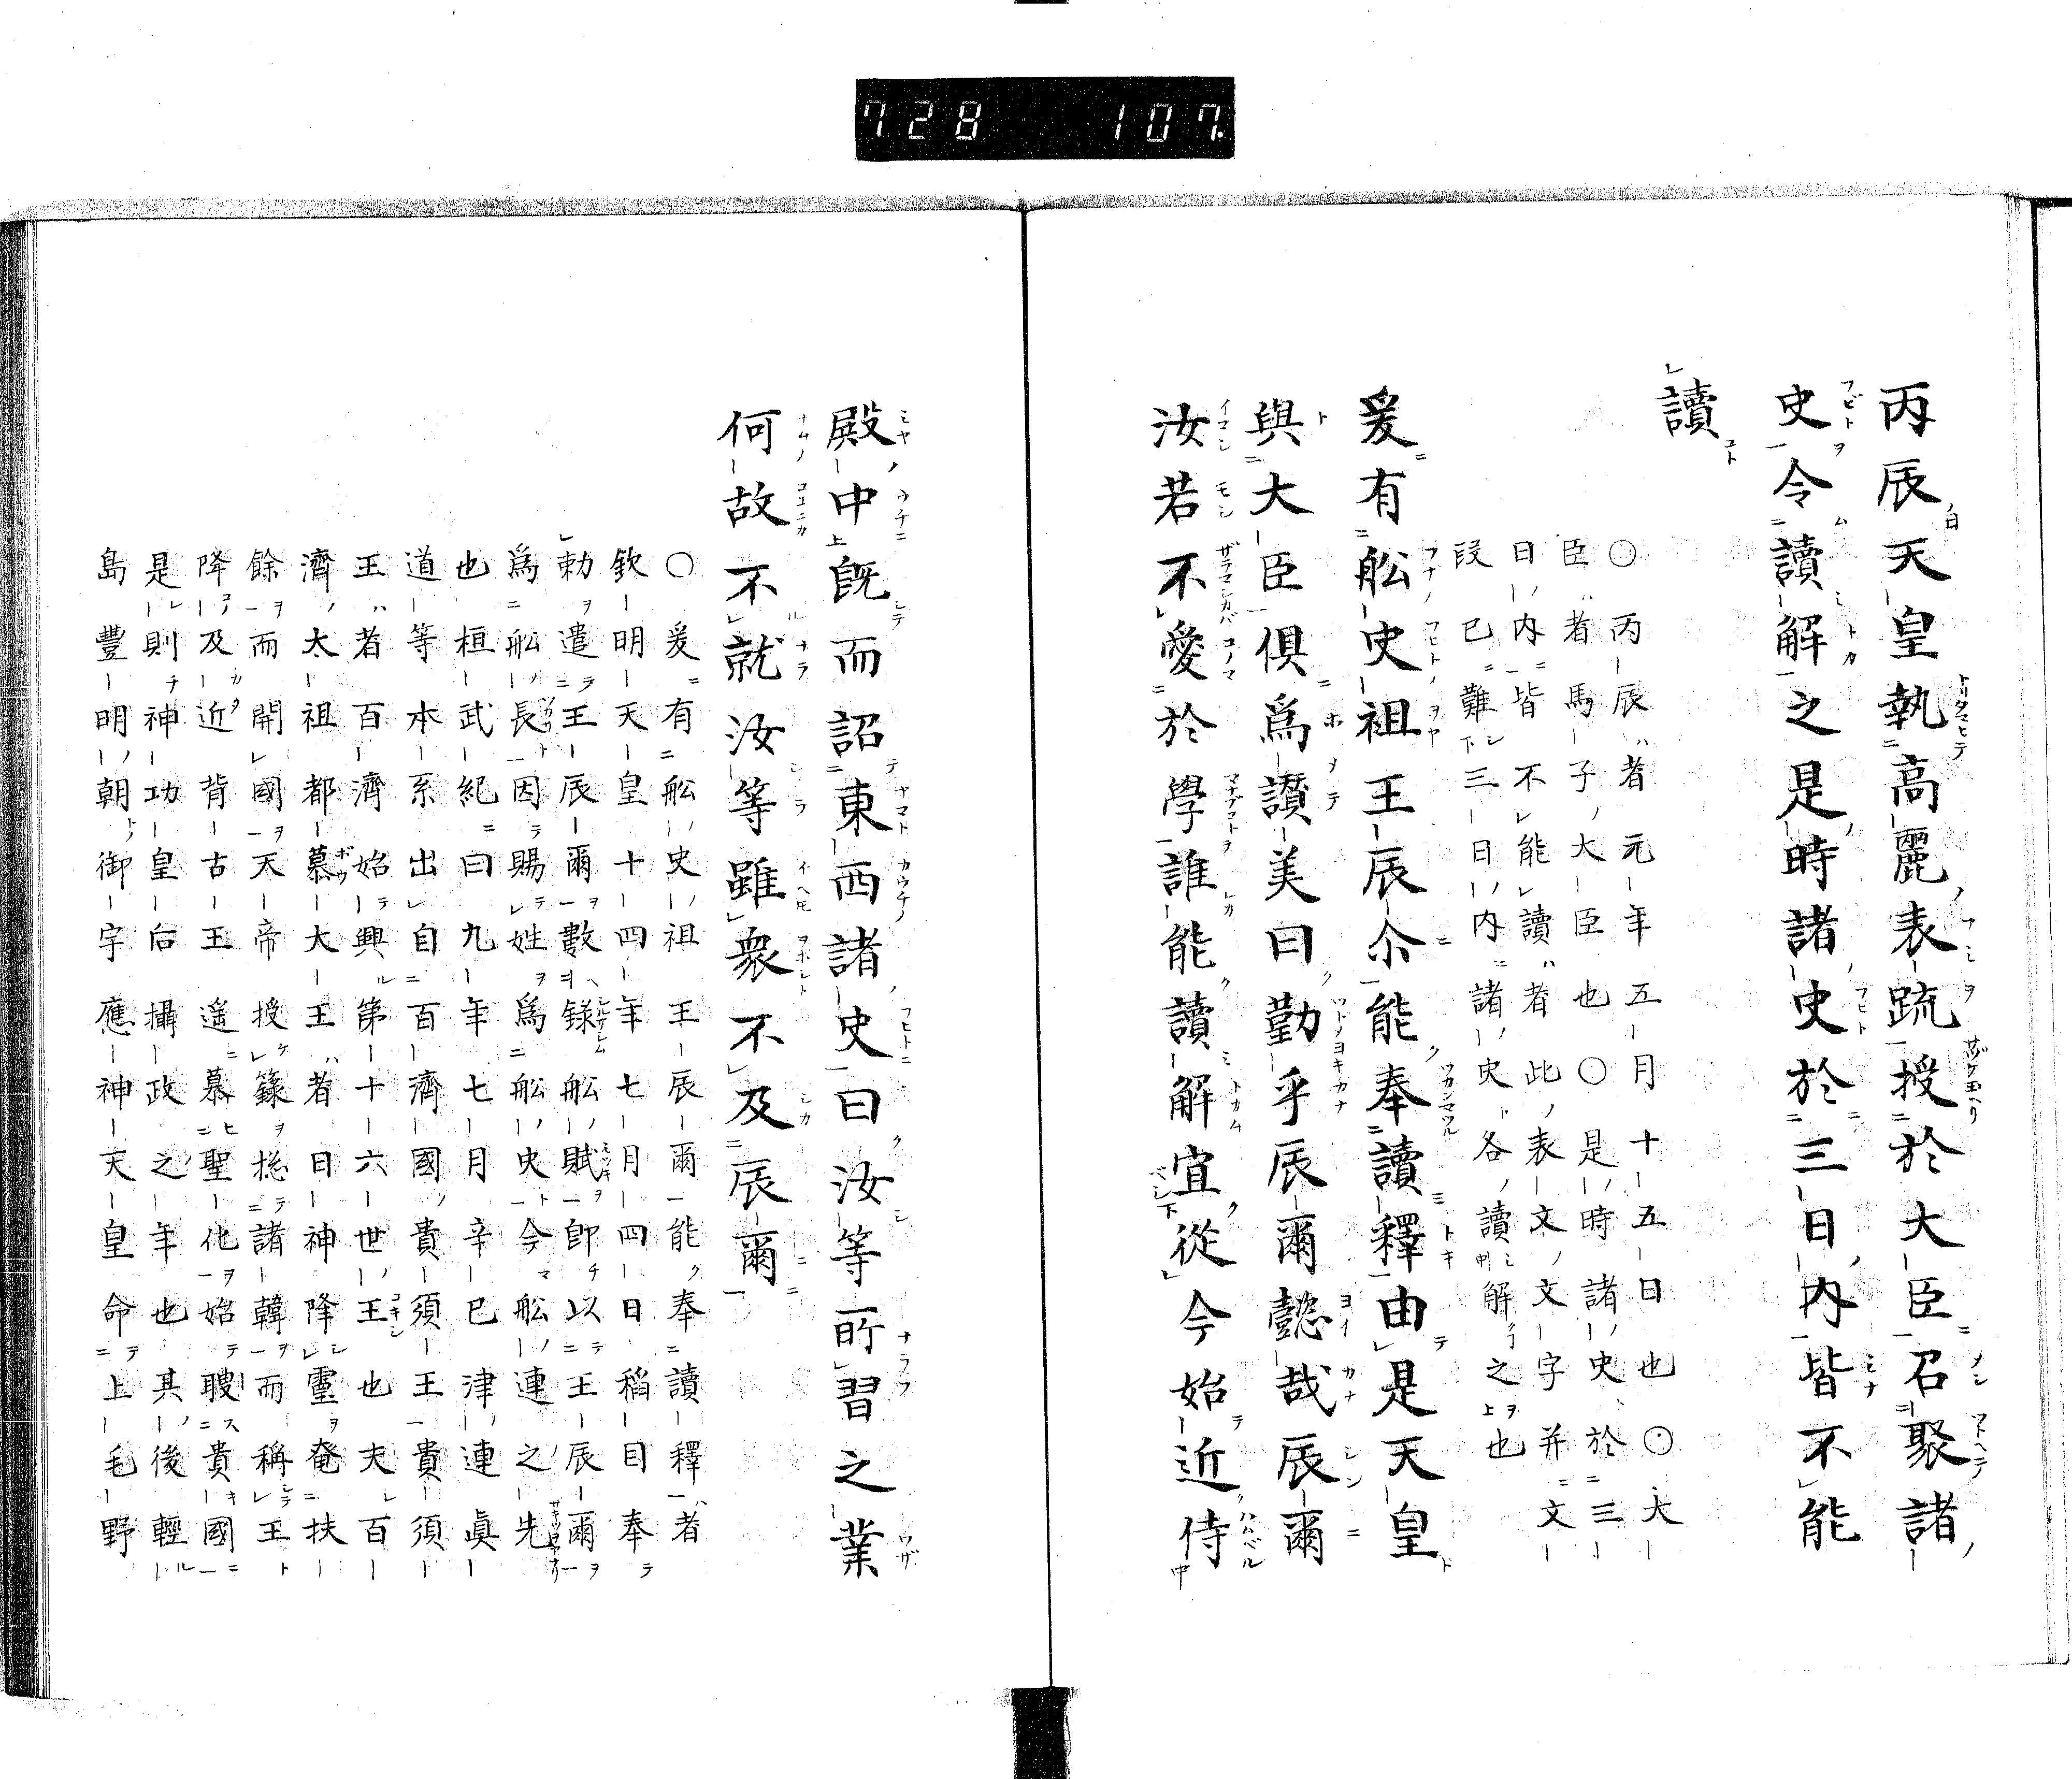 728 107.
丙辰天皇執高麗表䟽授於大臣召聚諸
史令讀解之是時諸史於三日内皆不能
讀
○丙辰者元年五月十五日也○大
臣者馬子大臣也○是時諸史於三
日内皆不能讀者此表文文字并文
段已難三日内諸史各讀解之也
爰有舩史祖王辰尒能奉讀釋由是天皇
與大臣倶爲讃美曰勤乎辰爾懿哉辰爾
汝若不愛於學誰能讀解宜從今始近侍
殿中既而詔東西諸史曰汝等所習之業
何故不就汝等雖衆不及辰爾
○爰有舩史祖王辰爾能奉讀釋者
欽明天皇十四年七月四日稻目奉
勅遣王辰爾數録舩賦卽以王辰爾
爲舩長因賜姓爲舩史今舩連之先
也桓武紀曰九年七月辛巳津連眞
道等本系出自百濟國貴須王貴須
王者百濟始興第十六世王也夫百
濟太祖都慕大王者日神降靈奄扶
餘而開國天帝授籙揔諸韓而稱王
降及近背古王遥慕聖化始聘貴國
是則神功皇后攝政之年也其後輕
島豐明朝御宇應神天皇命上毛野